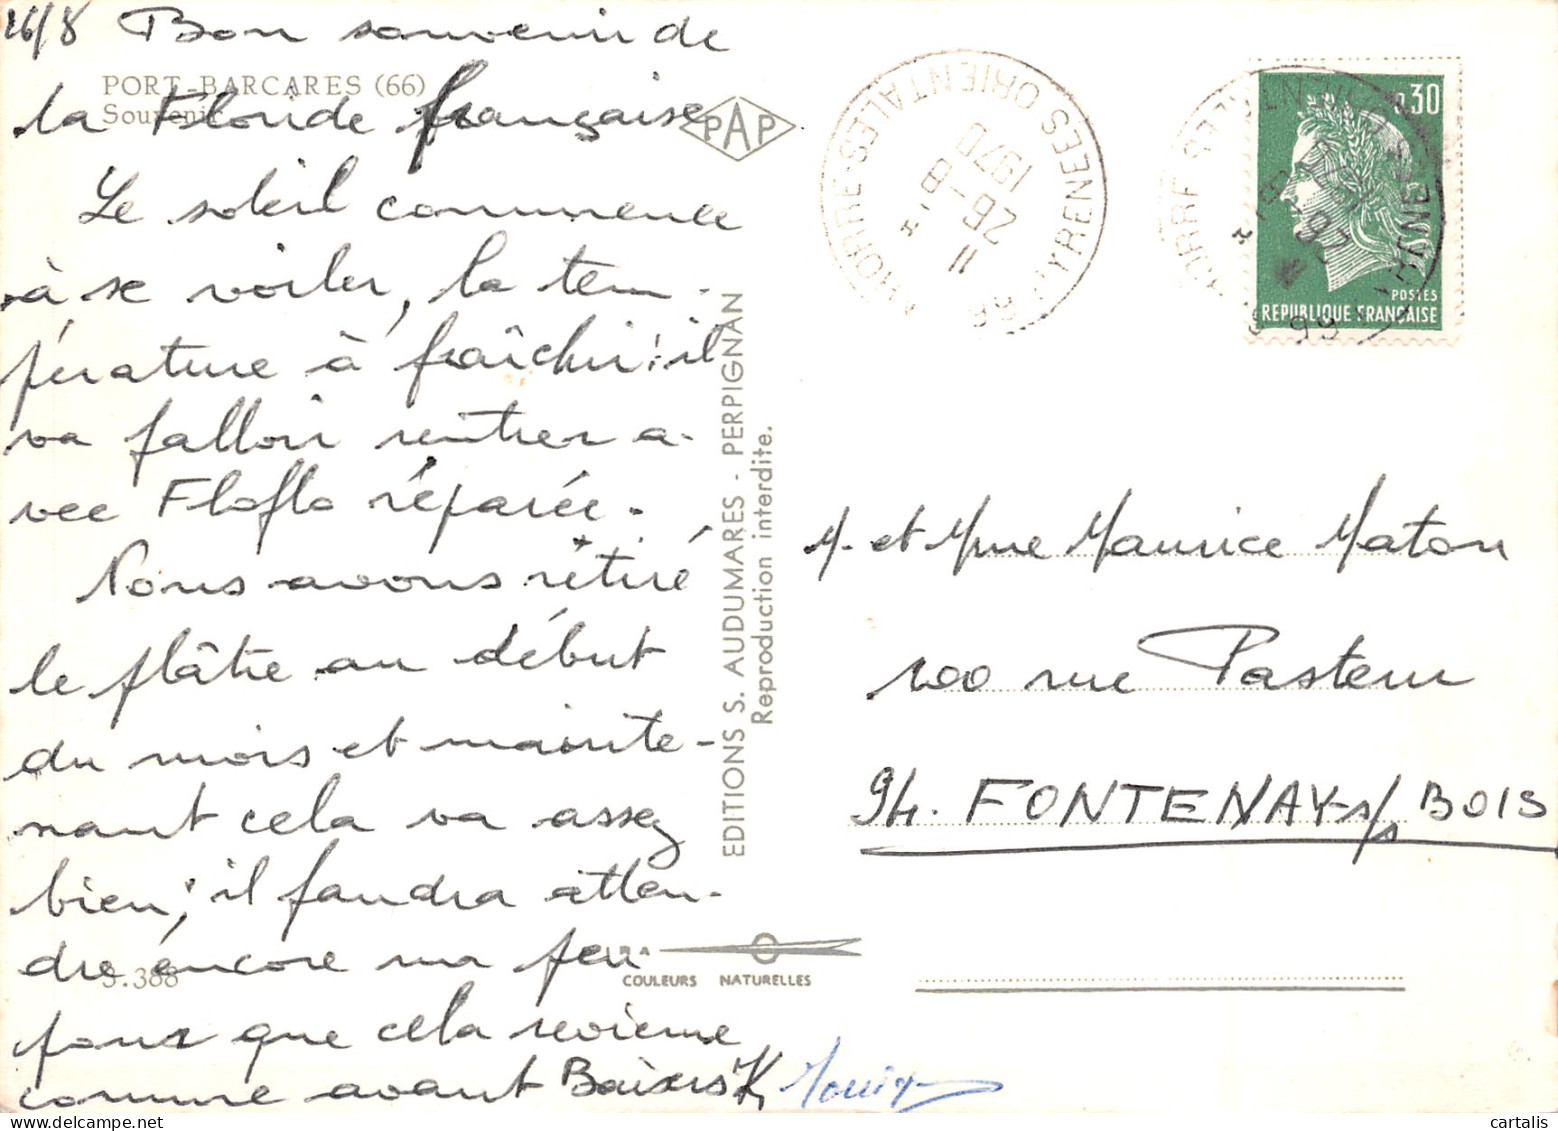 26/8 Bon souvenir de
PORT-BARCARES (66)
Souvenir
la Floride française
PAP
Le soleil commence
à se voiler, la tem-
pérature à fraîchir: il
va falloir rentrer a-
vec Floflo réparée.
Nous avons retiré
le plâtre au début
du mois et mainte-
nant cela va assez
bien; il faudra atten-
dre encore un peu
S.388
pour que cela revienne
comme avant Baisers
EDITIONS S. AUDUMARES - PERPIGNAN
Reproduction interdite.
COULEURS NATURELLES
PYRENEES ORIENTALES
11
26-8
1970
66
0,30
POSTES
REPUBLIQUE FRANÇAISE
M. et Mme Maurice Maton
100 rue Pasteur
94. FONTENAY-s/s BOIS
cartalis